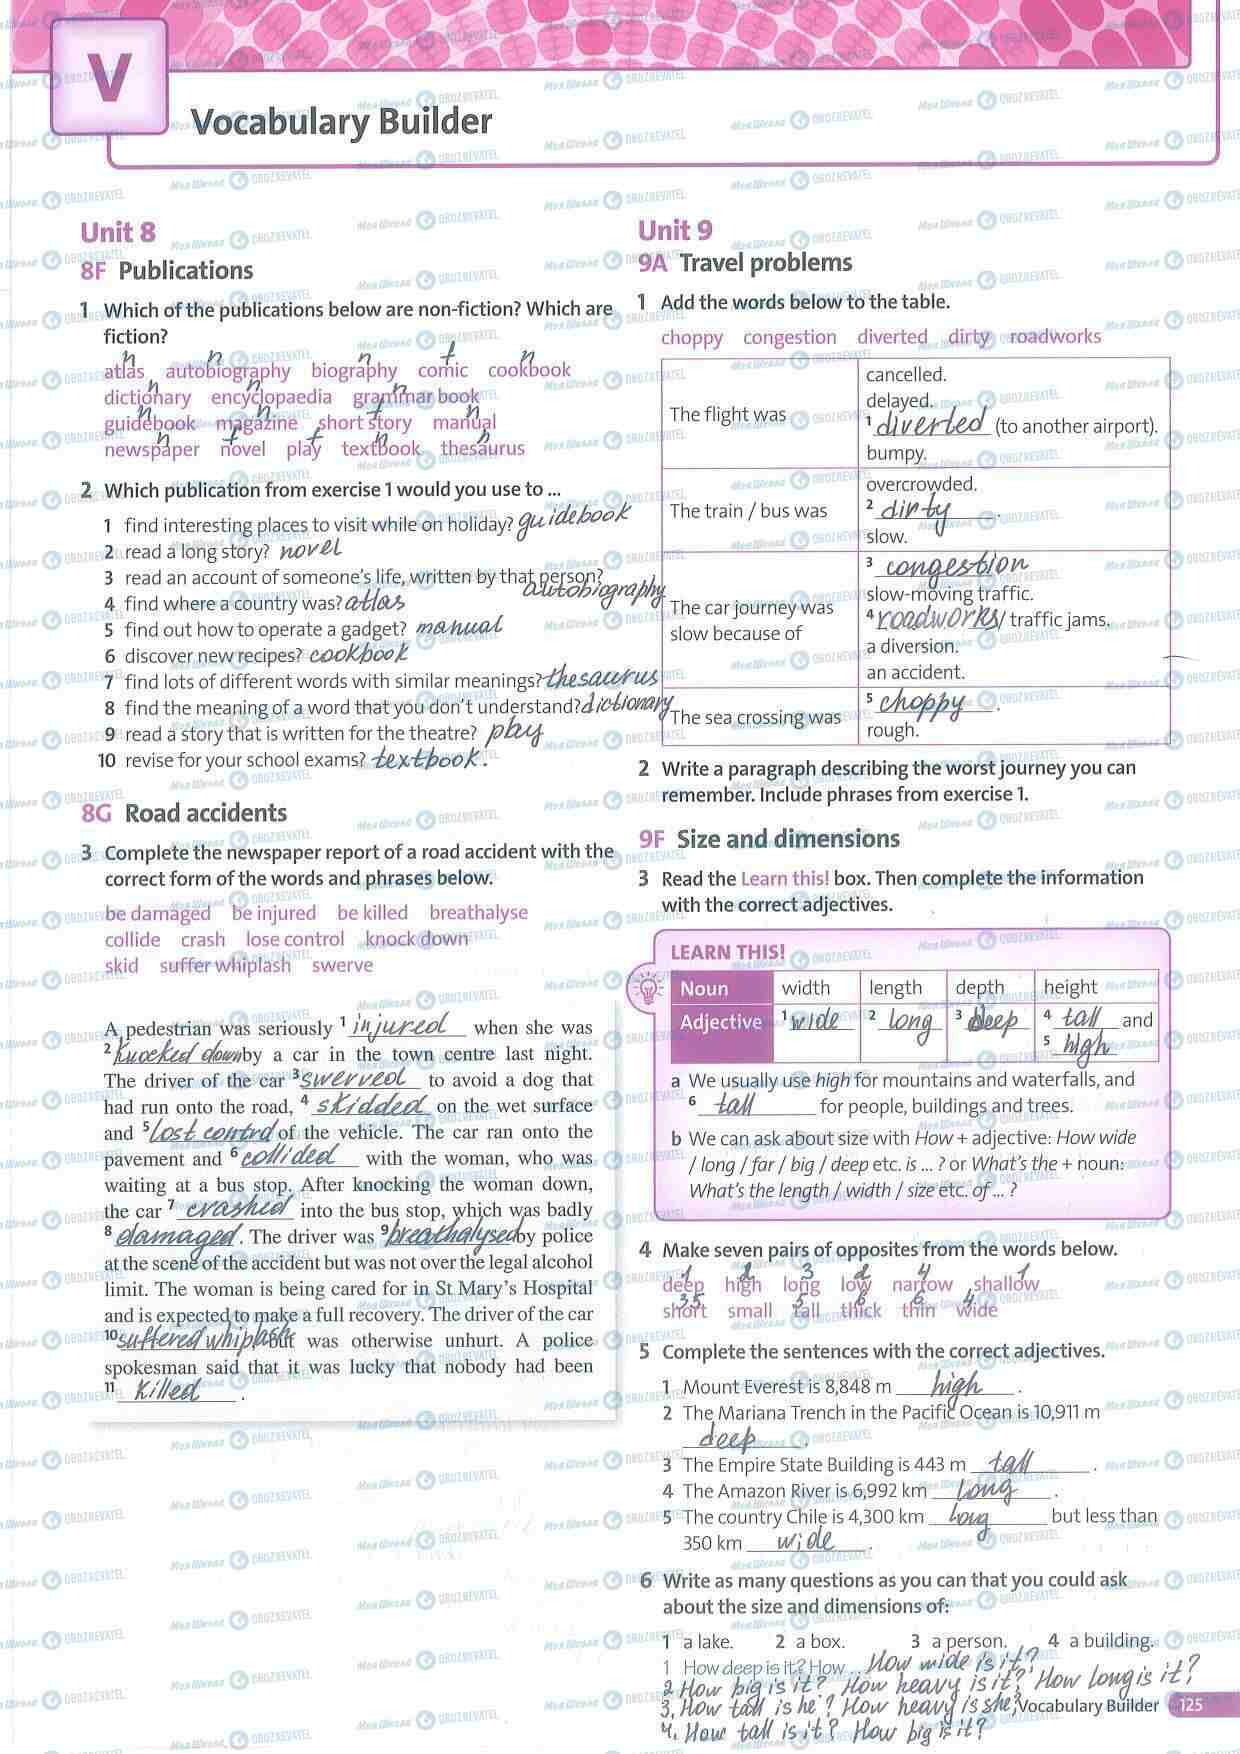 V
Vocabulary Builder
Unit 8
8F Publications
1 Which of the publications below are non-fiction? Which are
fiction?
n n n f n
atlas autobiography biography comic cookbook
n n n
dictionary encyclopaedia grammar book
n n f n
guidebook magazine short story manual
n f f n n
newspaper novel play textbook thesaurus
2 Which publication from exercise 1 would you use to ...
1 find interesting places to visit while on holiday? guidebook
2 read a long story? novel
3 read an account of someone's life, written by that person?
autobiography
4 find where a country was? atlas
5 find out how to operate a gadget? manual
6 discover new recipes? cookbook
7 find lots of different words with similar meanings? thesaurus
8 find the meaning of a word that you don't understand? dictionary
9 read a story that is written for the theatre? play
10 revise for your school exams? textbook.
8G Road accidents
3 Complete the newspaper report of a road accident with the
correct form of the words and phrases below.
be damaged be injured be killed breathalyse
collide crash lose control knock down
skid suffer whiplash swerve
A pedestrian was seriously 1 injured when she was
2 knocked down by a car in the town centre last night.
The driver of the car 3 swerved to avoid a dog that
had run onto the road, 4 skidded on the wet surface
and 5 lost control of the vehicle. The car ran onto the
pavement and 6 collided with the woman, who was
waiting at a bus stop. After knocking the woman down,
the car 7 crashed into the bus stop, which was badly
8 damaged. The driver was 9 breathalysed by police
at the scene of the accident but was not over the legal alcohol
limit. The woman is being cared for in St Mary's Hospital
and is expected to make a full recovery. The driver of the car
10 suffered whiplash but was otherwise unhurt. A police
spokesman said that it was lucky that nobody had been
11 killed.
Unit 9
9A Travel problems
1 Add the words below to the table.
choppy congestion diverted dirty roadworks
The flight was
cancelled.
delayed.
1 diverted (to another airport).
bumpy.
The train / bus was
overcrowded.
2 dirty.
slow.
The car journey was
slow because of
3 congestion
slow-moving traffic.
4 roadworks / traffic jams.
a diversion.
an accident.
The sea crossing was
5 choppy.
rough.
2 Write a paragraph describing the worst journey you can
remember. Include phrases from exercise 1.
9F Size and dimensions
3 Read the Learn this! box. Then complete the information
with the correct adjectives.
LEARN THIS!
Noun width length depth height
Adjective 1 wide 2 long 3 deep 4 tall and
5 high
a We usually use high for mountains and waterfalls, and
6 tall for people, buildings and trees.
b We can ask about size with How + adjective: How wide
/ long / far / big / deep etc. is ... ? or What's the + noun:
What's the length / width / size etc. of ... ?
4 Make seven pairs of opposites from the words below.
1 2 3 2 4 1
deep high long low narrow shallow
3,5 5 6 6 4
short small tall thick thin wide
5 Complete the sentences with the correct adjectives.
1 Mount Everest is 8,848 m high.
2 The Mariana Trench in the Pacific Ocean is 10,911 m
deep.
3 The Empire State Building is 443 m tall.
4 The Amazon River is 6,992 km long.
5 The country Chile is 4,300 km long but less than
350 km wide.
6 Write as many questions as you can that you could ask
about the size and dimensions of:
1 a lake. 2 a box. 3 a person. 4 a building.
1 How deep is it? How ... How wide is it?
2. How big is it? How heavy is it? How long is it?
3. How tall is he? How heavy is she?
4. How tall is it? How big is it?
Vocabulary Builder 125